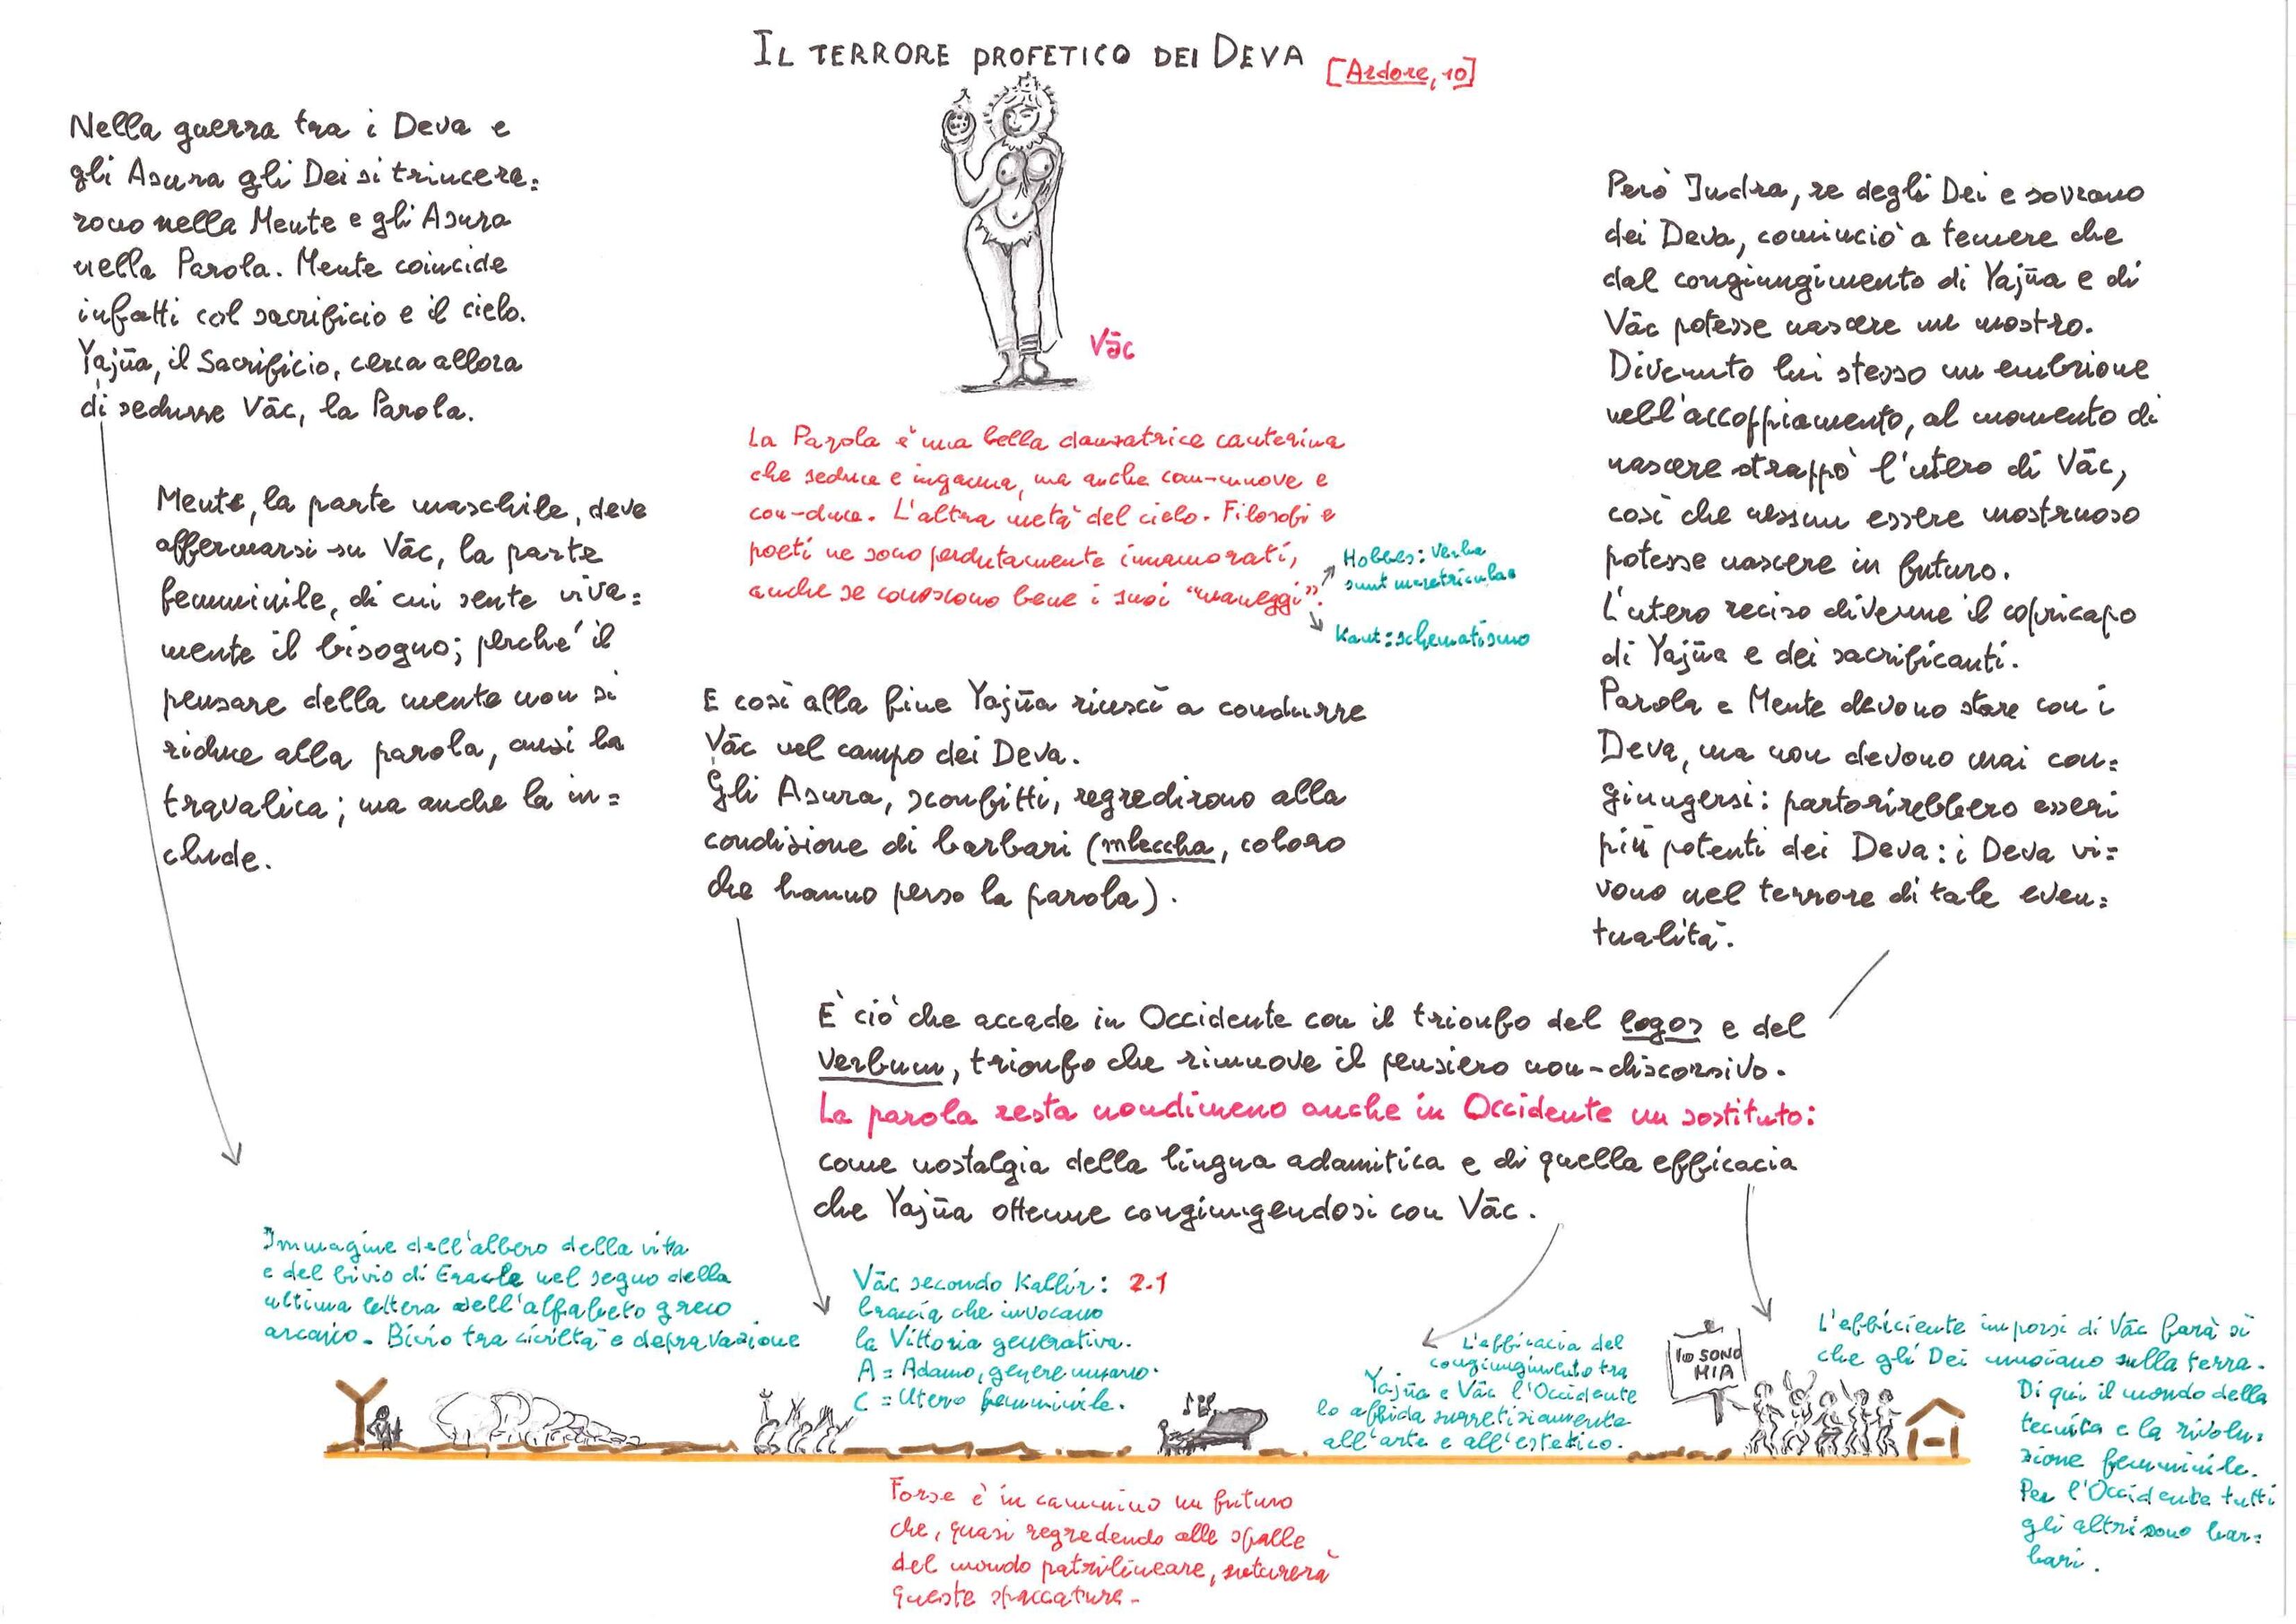 IL TERRORE PROFETICO DEI DEVA [Ardore, 10]
Nella guerra tra i Deva e
gli Asura gli Dei si trincera=
rono nella Mente e gli Asura
nella Parola. Mente coincide
infatti col sacrificio e il cielo.
Yajña, il Sacrificio, cerca allora
di sedurre Vāc, la Parola.
Mente, la parte maschile, deve
affermarsi su Vāc, la parte
femminile, di cui sente viva=
mente il bisogno; perché il
pensare della mente non si
riduce alla parola, anzi la
travalica; ma anche la in=
clude.
Vāc
La Parola è una bella danzatrice canterina
che seduce e inganna, ma anche com-muove e
con-duce. L'altra metà del cielo. Filosofi e
poeti ne sono perdutamente innamorati,
anche se conoscono bene i suoi "maneggi".
Hobbes: Verba
sunt meretriculae
Kant: schematismo
E così alla fine Yajña riuscì a condurre
Vāc nel campo dei Deva.
Gli Asura, sconfitti, regredirono alla
condizione di barbari (mleccha, coloro
che hanno perso la parola).
Però Indra, re degli Dei e sovrano
dei Deva, cominciò a temere che
dal congiungimento di Yajña e di
Vāc potesse nascere un mostro.
Divenuto lui stesso un embrione
nell'accoppiamento, al momento di
nascere strappò l'utero di Vāc,
così che nessun essere mostruoso
potesse nascere in futuro.
L'utero reciso divenne il copricapo
di Yajña e dei sacrificanti.
Parola e Mente devono stare con i
Deva, ma non devono mai con=
giungersi: partorirebbero esseri
più potenti dei Deva: i Deva vi=
vono nel terrore di tale even=
tualità.
È ciò che accade in Occidente con il trionfo del logos e del
Verbum, trionfo che rimuove il pensiero non-discorsivo.
La parola resta nondimeno anche in Occidente un sostituto:
come nostalgia della lingua adamitica e di quella efficacia
che Yajña ottenne congiungendosi con Vāc.
Immagine dell'albero della vita
e del bivio di Eracle nel segno della
ultima lettera dell'alfabeto greco
arcaico. Bivio tra civiltà e depravazione
Vāc secondo Kallir: 2.1
braccia che invocano
la Vittoria generativa.
A = Adamo, genere umano.
C = Utero femminile.
L'efficacia del
congiungimento tra
Yajña e Vāc l'Occidente
lo affida surretiziamente
all'arte e all'estetico.
IO SONO
MIA
L'efficiente imporsi di Vāc farà sì
che gli Dei muoiano sulla terra.
Di qui il mondo della
tecnica e la rivolu=
zione femminile.
Per l'Occidente tutti
gli altri sono bar=
bari.
Forse è in cammino un futuro
che, quasi regredendo alle spalle
del mondo patrilineare, suturerà
queste spaccature.